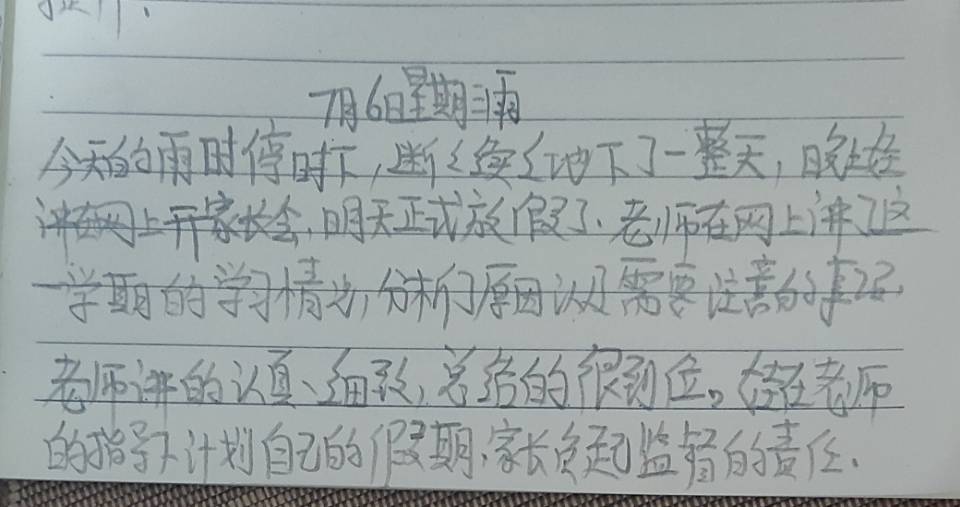 7月6日星期三雨
今天的雨时停时下,断断续续地下了一整天,晚上娃
讲在网上开家长会,明天正式放假了.老师在网上讲了这
一学期的学习情况,分析了原因以及需要注意的事项.
老师讲的认真、细致,总结的很到位。娃在老师
的指导下计划自己的假期.家长负起监督的责任.